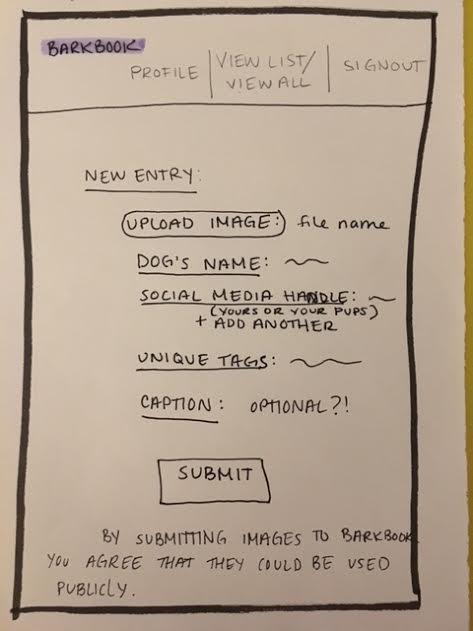 BARKBOOK
PROFILE | VIEW LIST/ | SIGNOUT
VIEW ALL
NEW ENTRY:
UPLOAD IMAGE: file name
DOG'S NAME:
SOCIAL MEDIA HANDLE:
(YOURS OR YOUR PUPS)
+ ADD ANOTHER
UNIQUE TAGS:
CAPTION: OPTIONAL?!
SUBMIT
BY SUBMITTING IMAGES TO BARKBOOK
YOU AGREE THAT THEY COULD BE USED
PUBLICLY.